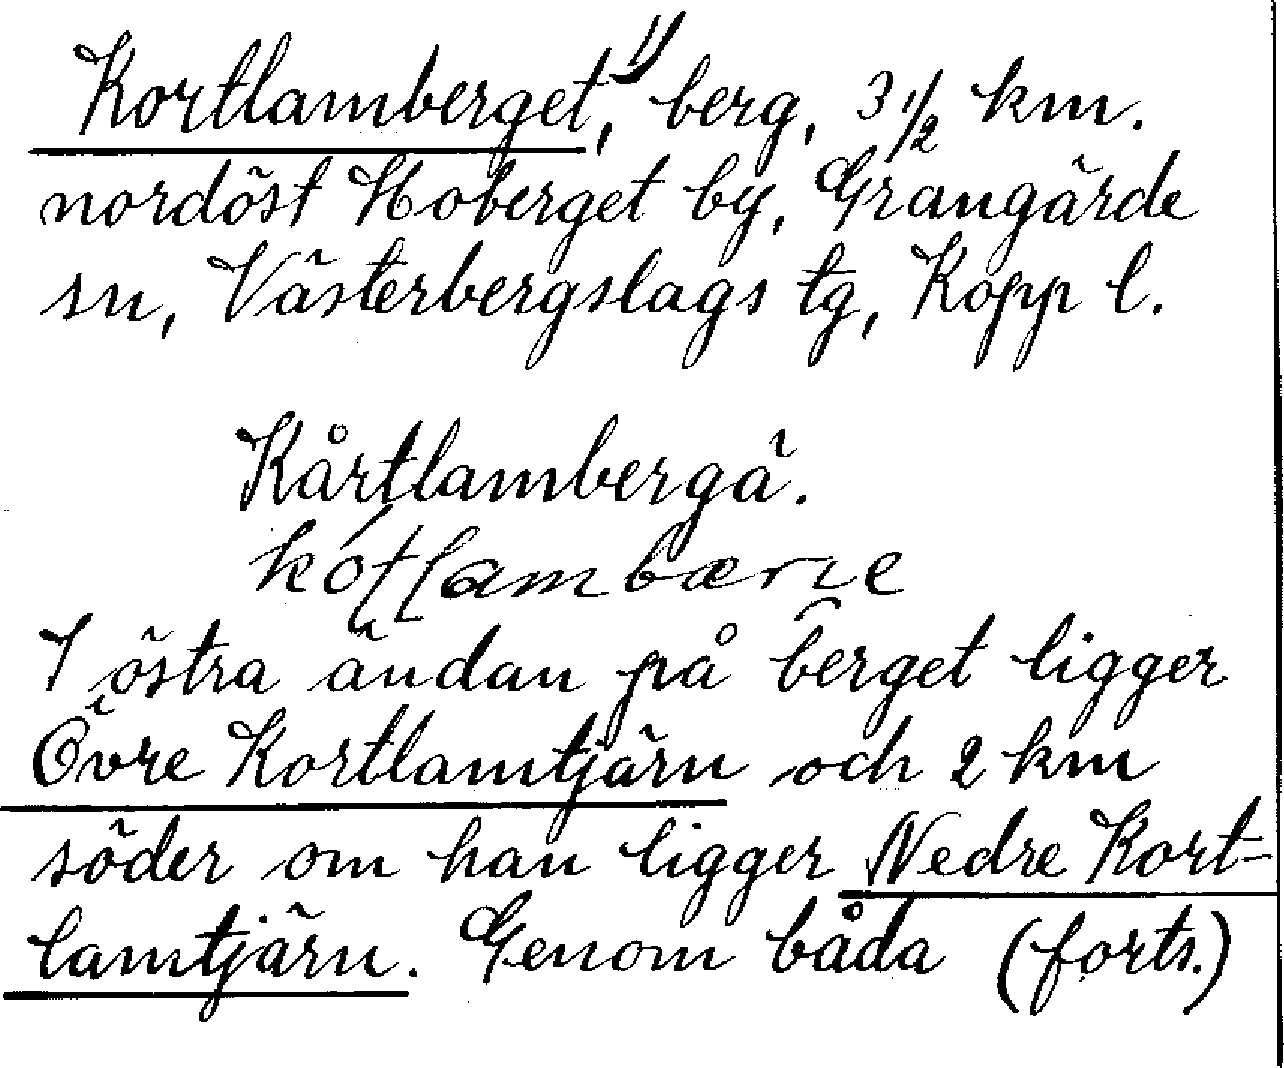 Kortlamberget,¹⁾ berg, 3 1/2 km.
nordöst Hoberget by, Grangärde
sn, Västerbergslags tg, Kopp l.
Kårtlambergä.
I östra ändan på berget ligger
Övre Kortlamtjärn och 2 km
söder om han ligger Nedre Kort-
lamtjärn. Genom båda (forts.)